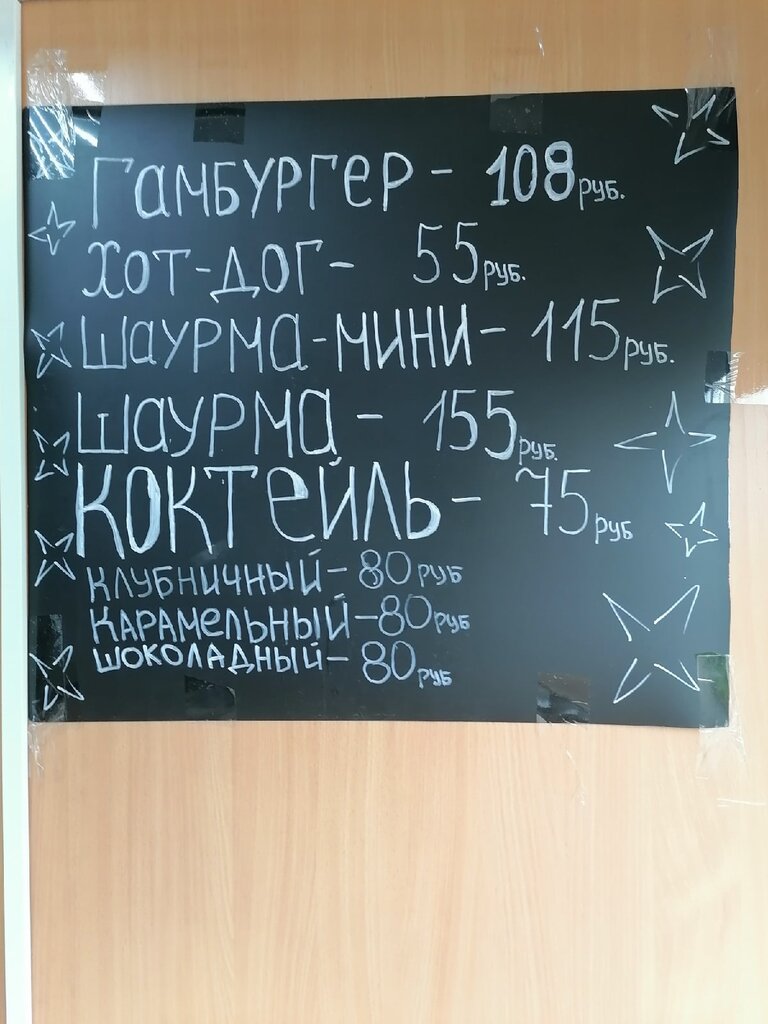 Гамбургер - 108 руб.
Хот-дог - 55 руб.
Шаурма-мини - 115 руб.
Шаурма - 155 руб.
Коктейль - 75 руб
Клубничный - 80 руб
Карамельный - 80 руб
Шоколадный - 80 руб